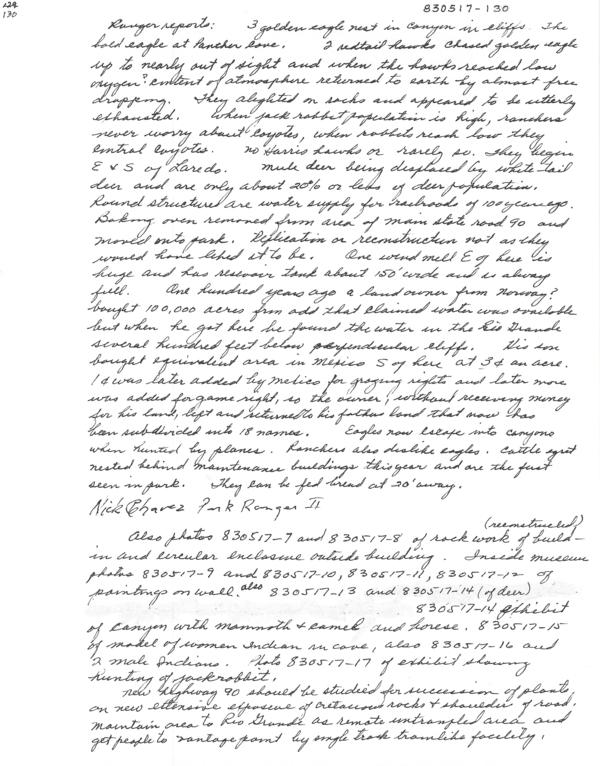 129
130
830517-130
Ranger reports: 3 golden eagle nest in canyon in cliffs. The
bald eagle at Panther Cave. 2 redtail hawks chased golden eagle
up to nearly out of sight and when the hawks reached low
oxygen? content of atmosphere returned to earth by almost free
dropping. They alighted on rocks and appeared to be utterly
exhausted. When jack rabbit population is high, ranchers
never worry about coyotes, when rabbits reach low they
control coyotes. no Harris hawks or rarely so. They begin
E & S of Laredo. mule deer being displaced by white-tail
deer and are only about 20% or less of deer population.
Round structures are water supply for railroads of 100 years ago.
Baking oven removed from area of main state road 90 and
moved onto park. Replication or reconstruction not as they
would have liked it to be. One wind mill E of here is
huge and has resevoir tank about 150' wide and is always
full. One hundred years ago a land owner from Norway?
bought 100,000 acres from add that claimed water was available
but when he got here he found the water in the Rio Grande
several hundred feet below perpendicular cliffs. His son
bought equivalent area in Mexico S of here at 3¢ an acre.
1¢ was later added by Mexico for grazing rights and later more
was added for game right, so the owner, without receiving money
for his land, left and returned to his fathers land that now has
been subdivided into 18 names. Eagles now escape into canyons
when hunted by planes. Ranchers also dislike eagles. Cattle egret
nested behind maintenance buildings this year and are the first
seen in park. They can be fed bread at 20' away.
Nick Chavez Park Ranger II
(reconstructed)
Also photos 830517-7 and 830517-8 of rock work of build-
in and circular enclosure outside building. Inside museum
photos 830517-9 and 830517-10, 830517-11, 830517-12 of
paintings on wall. also 830517-13 and 830517-14 (of deer)
830517-14 exhibit
of canyon with mammoth & camel and horse. 830517-15
of model of women Indian in cave, also 830517-16 and
2 male Indians. Photo 830517-17 of exhibit showing
hunting of jack rabbit.
new highway 90 should be studied for succession of plants,
on new extensive exposure of Cretaceous rocks & shoulder of road.
Maintain area to Rio Grande as remote untrampled area and
get people to vantage point by single track tramlike facility.